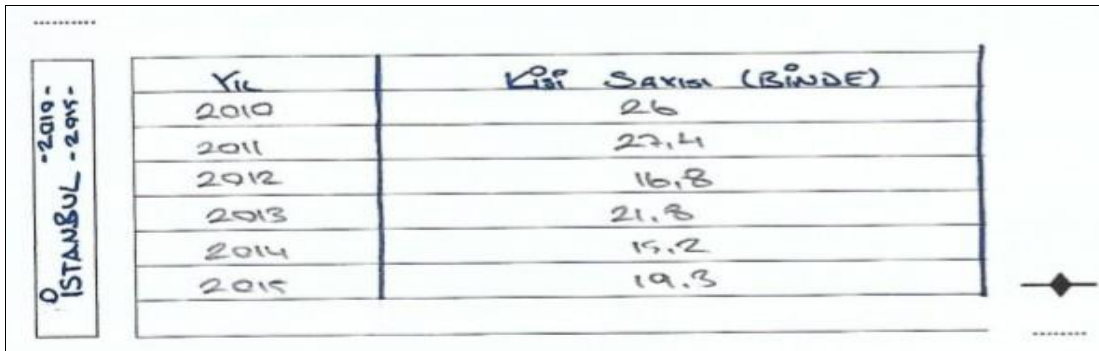 İSTANBUL -2010-
-2015-
Yıl Kişi Sayısı (BİNDE)
2010 26
2011 27,4
2012 16,8
2013 21,8
2014 15,2
2015 19,3